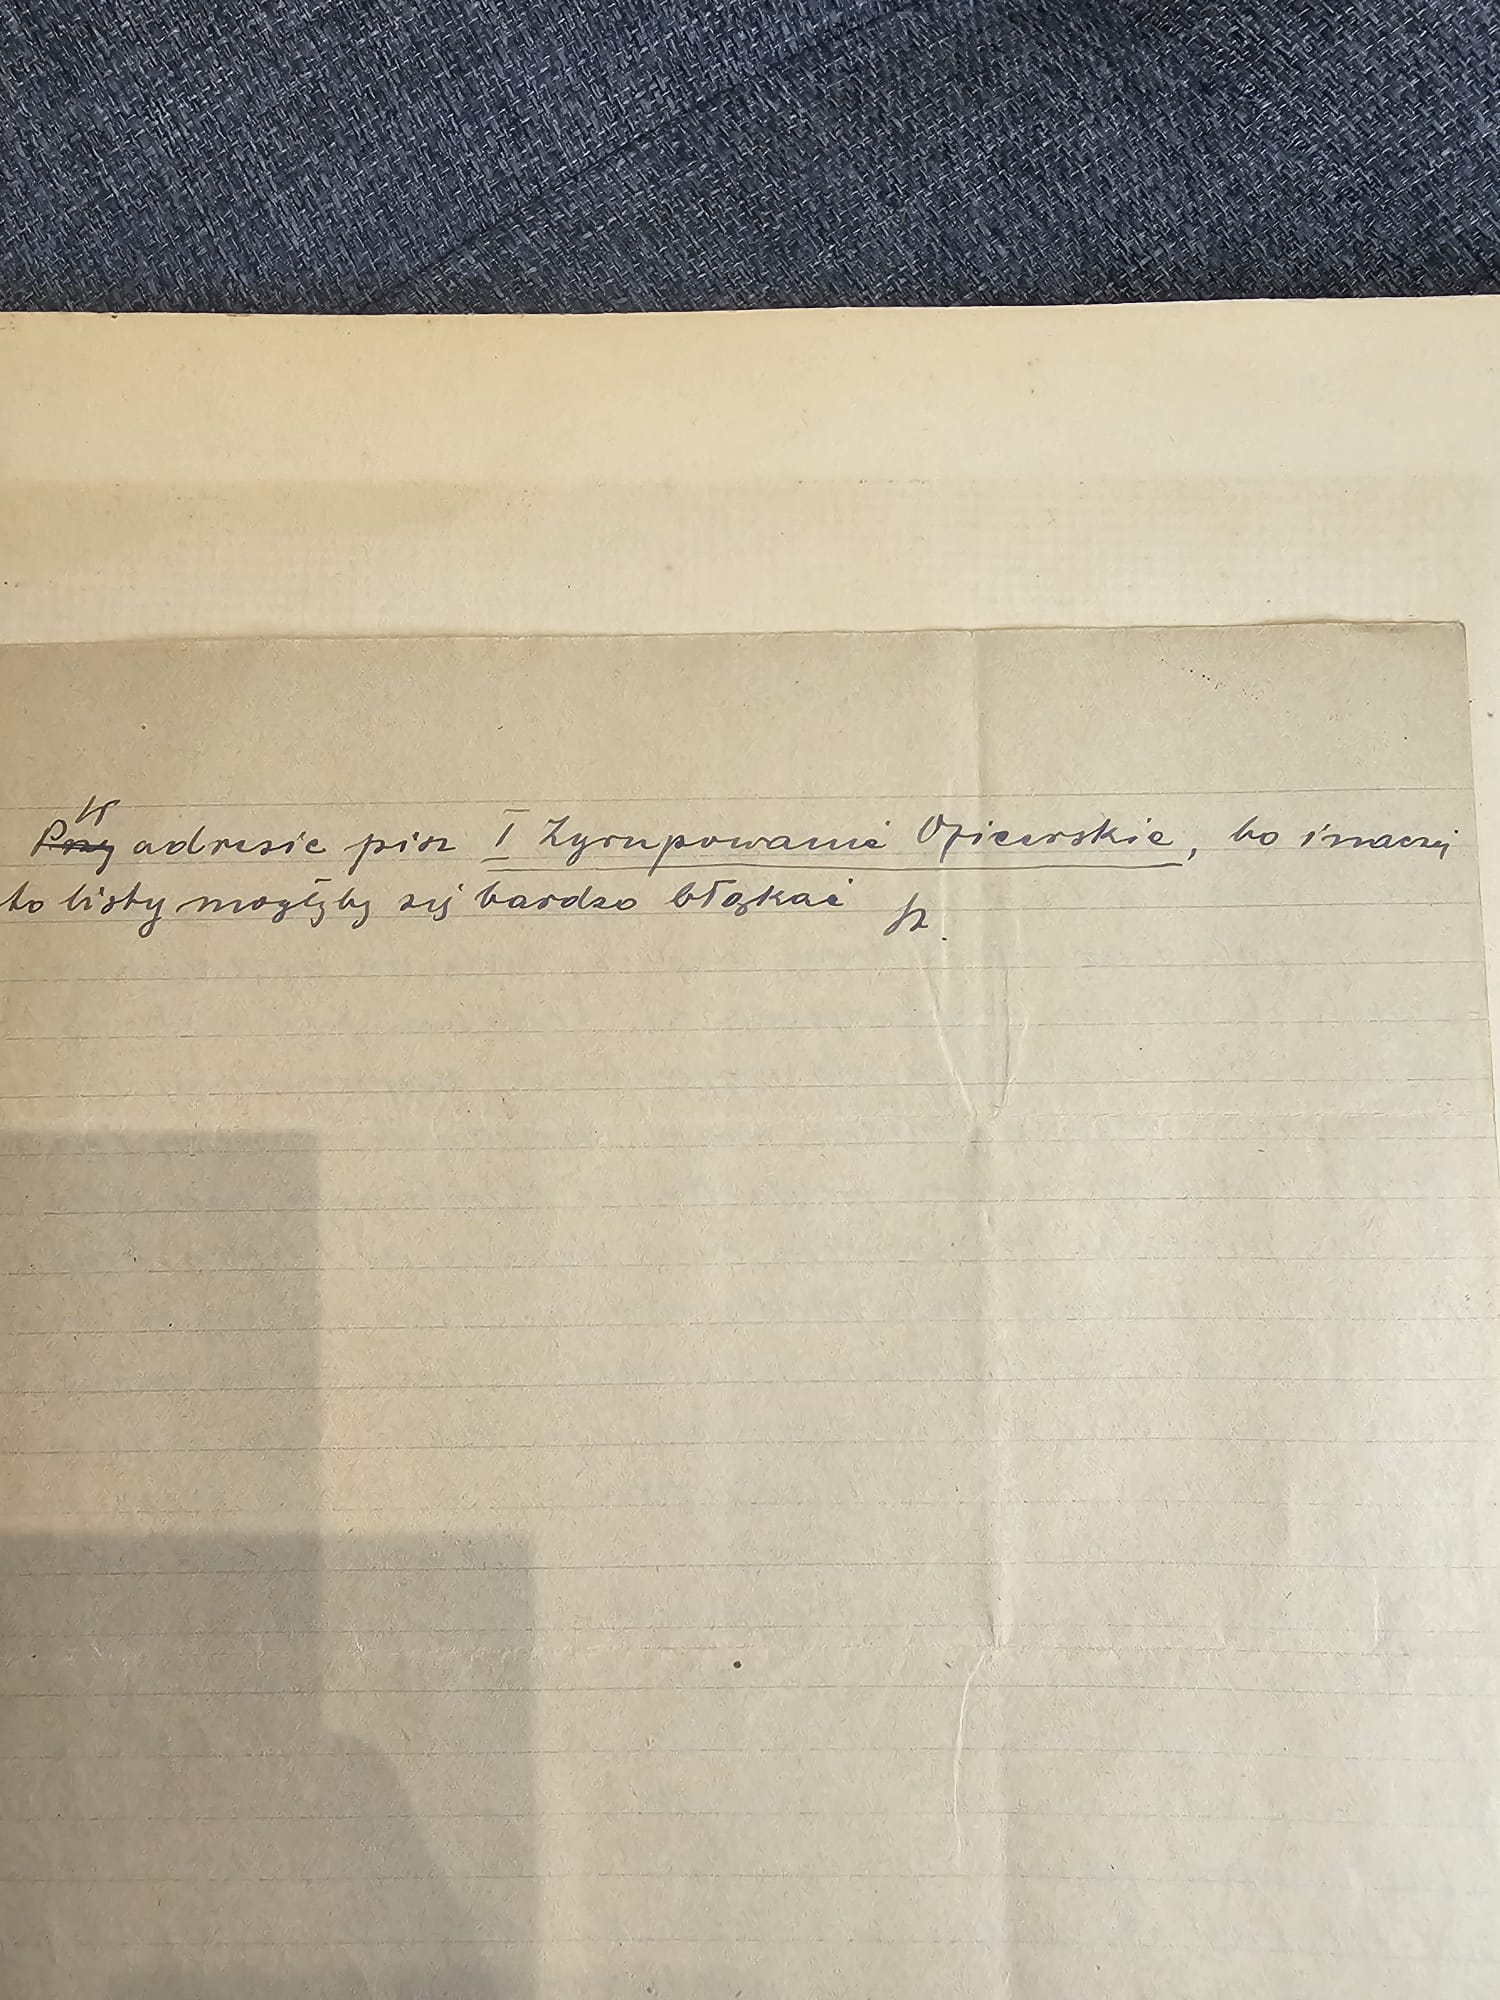 W
Przy adresie pisz I Zgrupowanie Oficerskie, bo inaczej
to listy mogłyby się bardzo błąkać